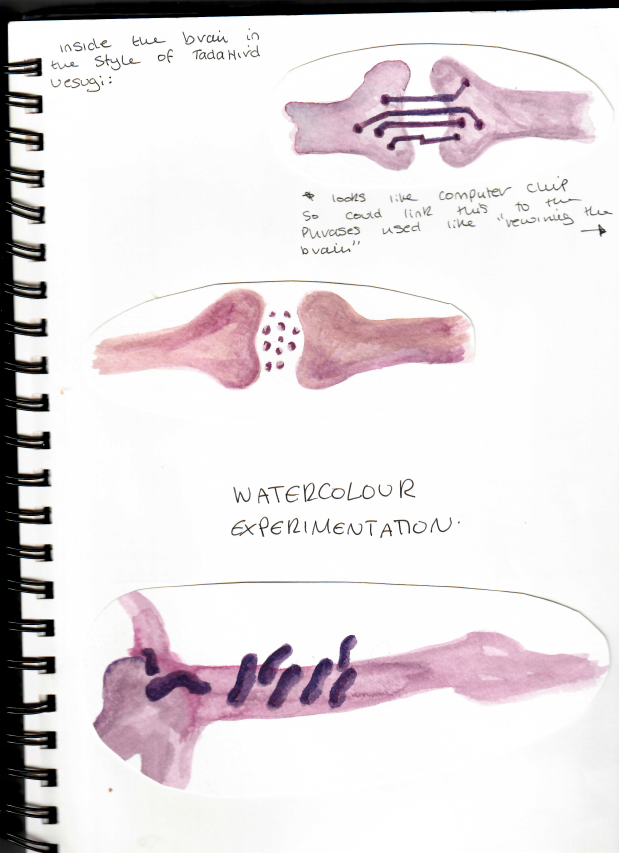 inside the brain in
the style of Tadahiro
Uesugi:
* looks like computer chip
so could link this to the
phrases used like "rewiring the
brain" →
WATERCOLOUR
EXPERIMENTATION.